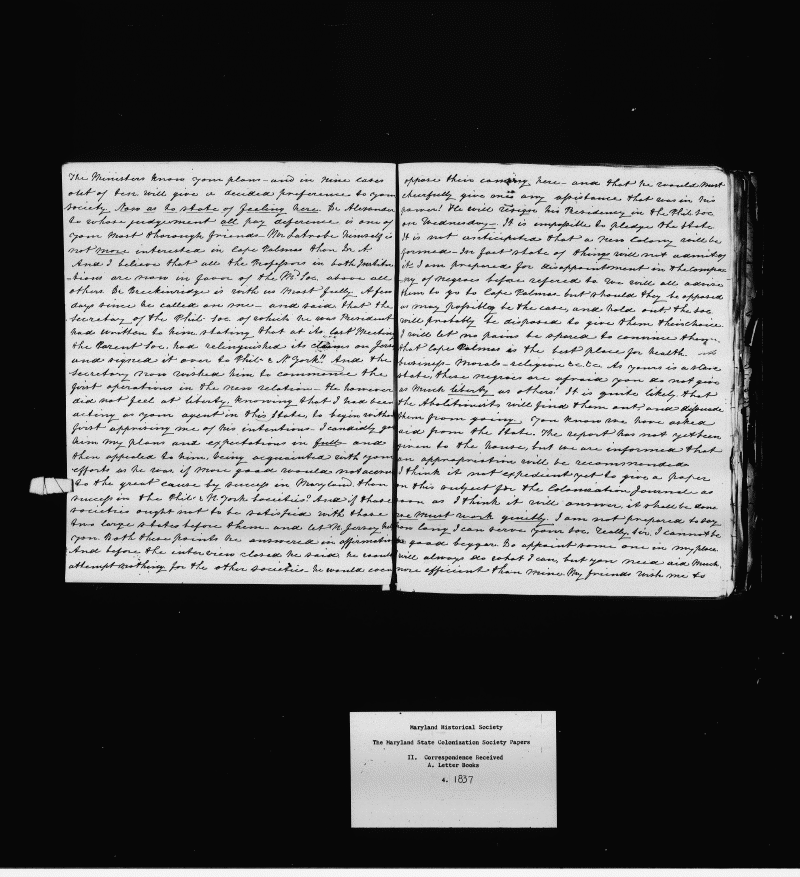 The Ministers know your plans - and in nine cases
out of ten will give a decided preference to your
society. Now as to state of feeling here. Dr Alexander
to whose judgement all pay deference is one of
your most thorough friends. Mr Latrobe himself is
not more interested in Cape Palmas than Dr A.
And I believe that all the Professors in both Institu-
-tions are now in favor of the Md Soc. above all
others. Dr Breckenridge is with us most fully. A few
days since he called on me - and said that the
secretary of the Phil. Soc. of which he was President
had written to him stating that at its last Meeting
the Parent Soc. had relinquished its claims on Jersey
and signed it over to "Phil. & N York". And the
secretary now wished him to commence the
first operations in the new relation - He however
did not feel at liberty, knowing that I had been
acting as your agent in this State, to begin without
first apprising me of his intentions. I candidly gave
him my plans and expectations in full - and
then appealed to him, being acquainted with your
efforts as he was if more good would not accrue
to the great cause by success in Maryland, than
success in the Phil. & N. York Societies? And if those
societies ought not to be satisfied with those
two large states before them - and let N. Jersey help
you. Both these points he answered in affirmative
And before the interview closed he said he would
attempt nothing for the other societies. he would even
oppose their coming here - and that he would most
cheerfully give me any assistance that was in his
power! He will resign his Presidency in the Phil. Soc
on Wednesday. It is impossible to pledge the State
It is not anticipated that a New Colony will be
formed - In fact state of things will not admit of
it. I am prepared for disappointment in the compa-
ny of negroes before refered to we will all advise
them to go to Cape Palmas but should they be opposed
as may possibly be the case, and hold out the Soc.
will probably be disposed to give them their choice
I will let no pains be spared to convince them
that Cape Palmas is the best place for health
business - Morals - religion &c &c As yours is a slave
state, these negroes are afraid you do not give
as much liberty as others! It is quite likely that
the Abolitionists will find them out and dissuade
them from going. You know we have asked
aid from the State. The report has not yet been
given to the house, but we are informed that
an appropriation will be recommended
I think it not expedient yet to give a paper
on this subject for the Colonization Journal as
soon as I think it will answer it shall be done
we must work quietly. I am not prepared to say
how long I can serve your Soc. Really, Sir, I cannot be
a good beggar. Do appoint some one in my place
will always do what I can, but you need aid much
more efficient than mine. My friends wish me to
Maryland Historical Society
The Maryland State Colonization Society Papers
II. Correspondence Received
A. Letter Books
4. 1837